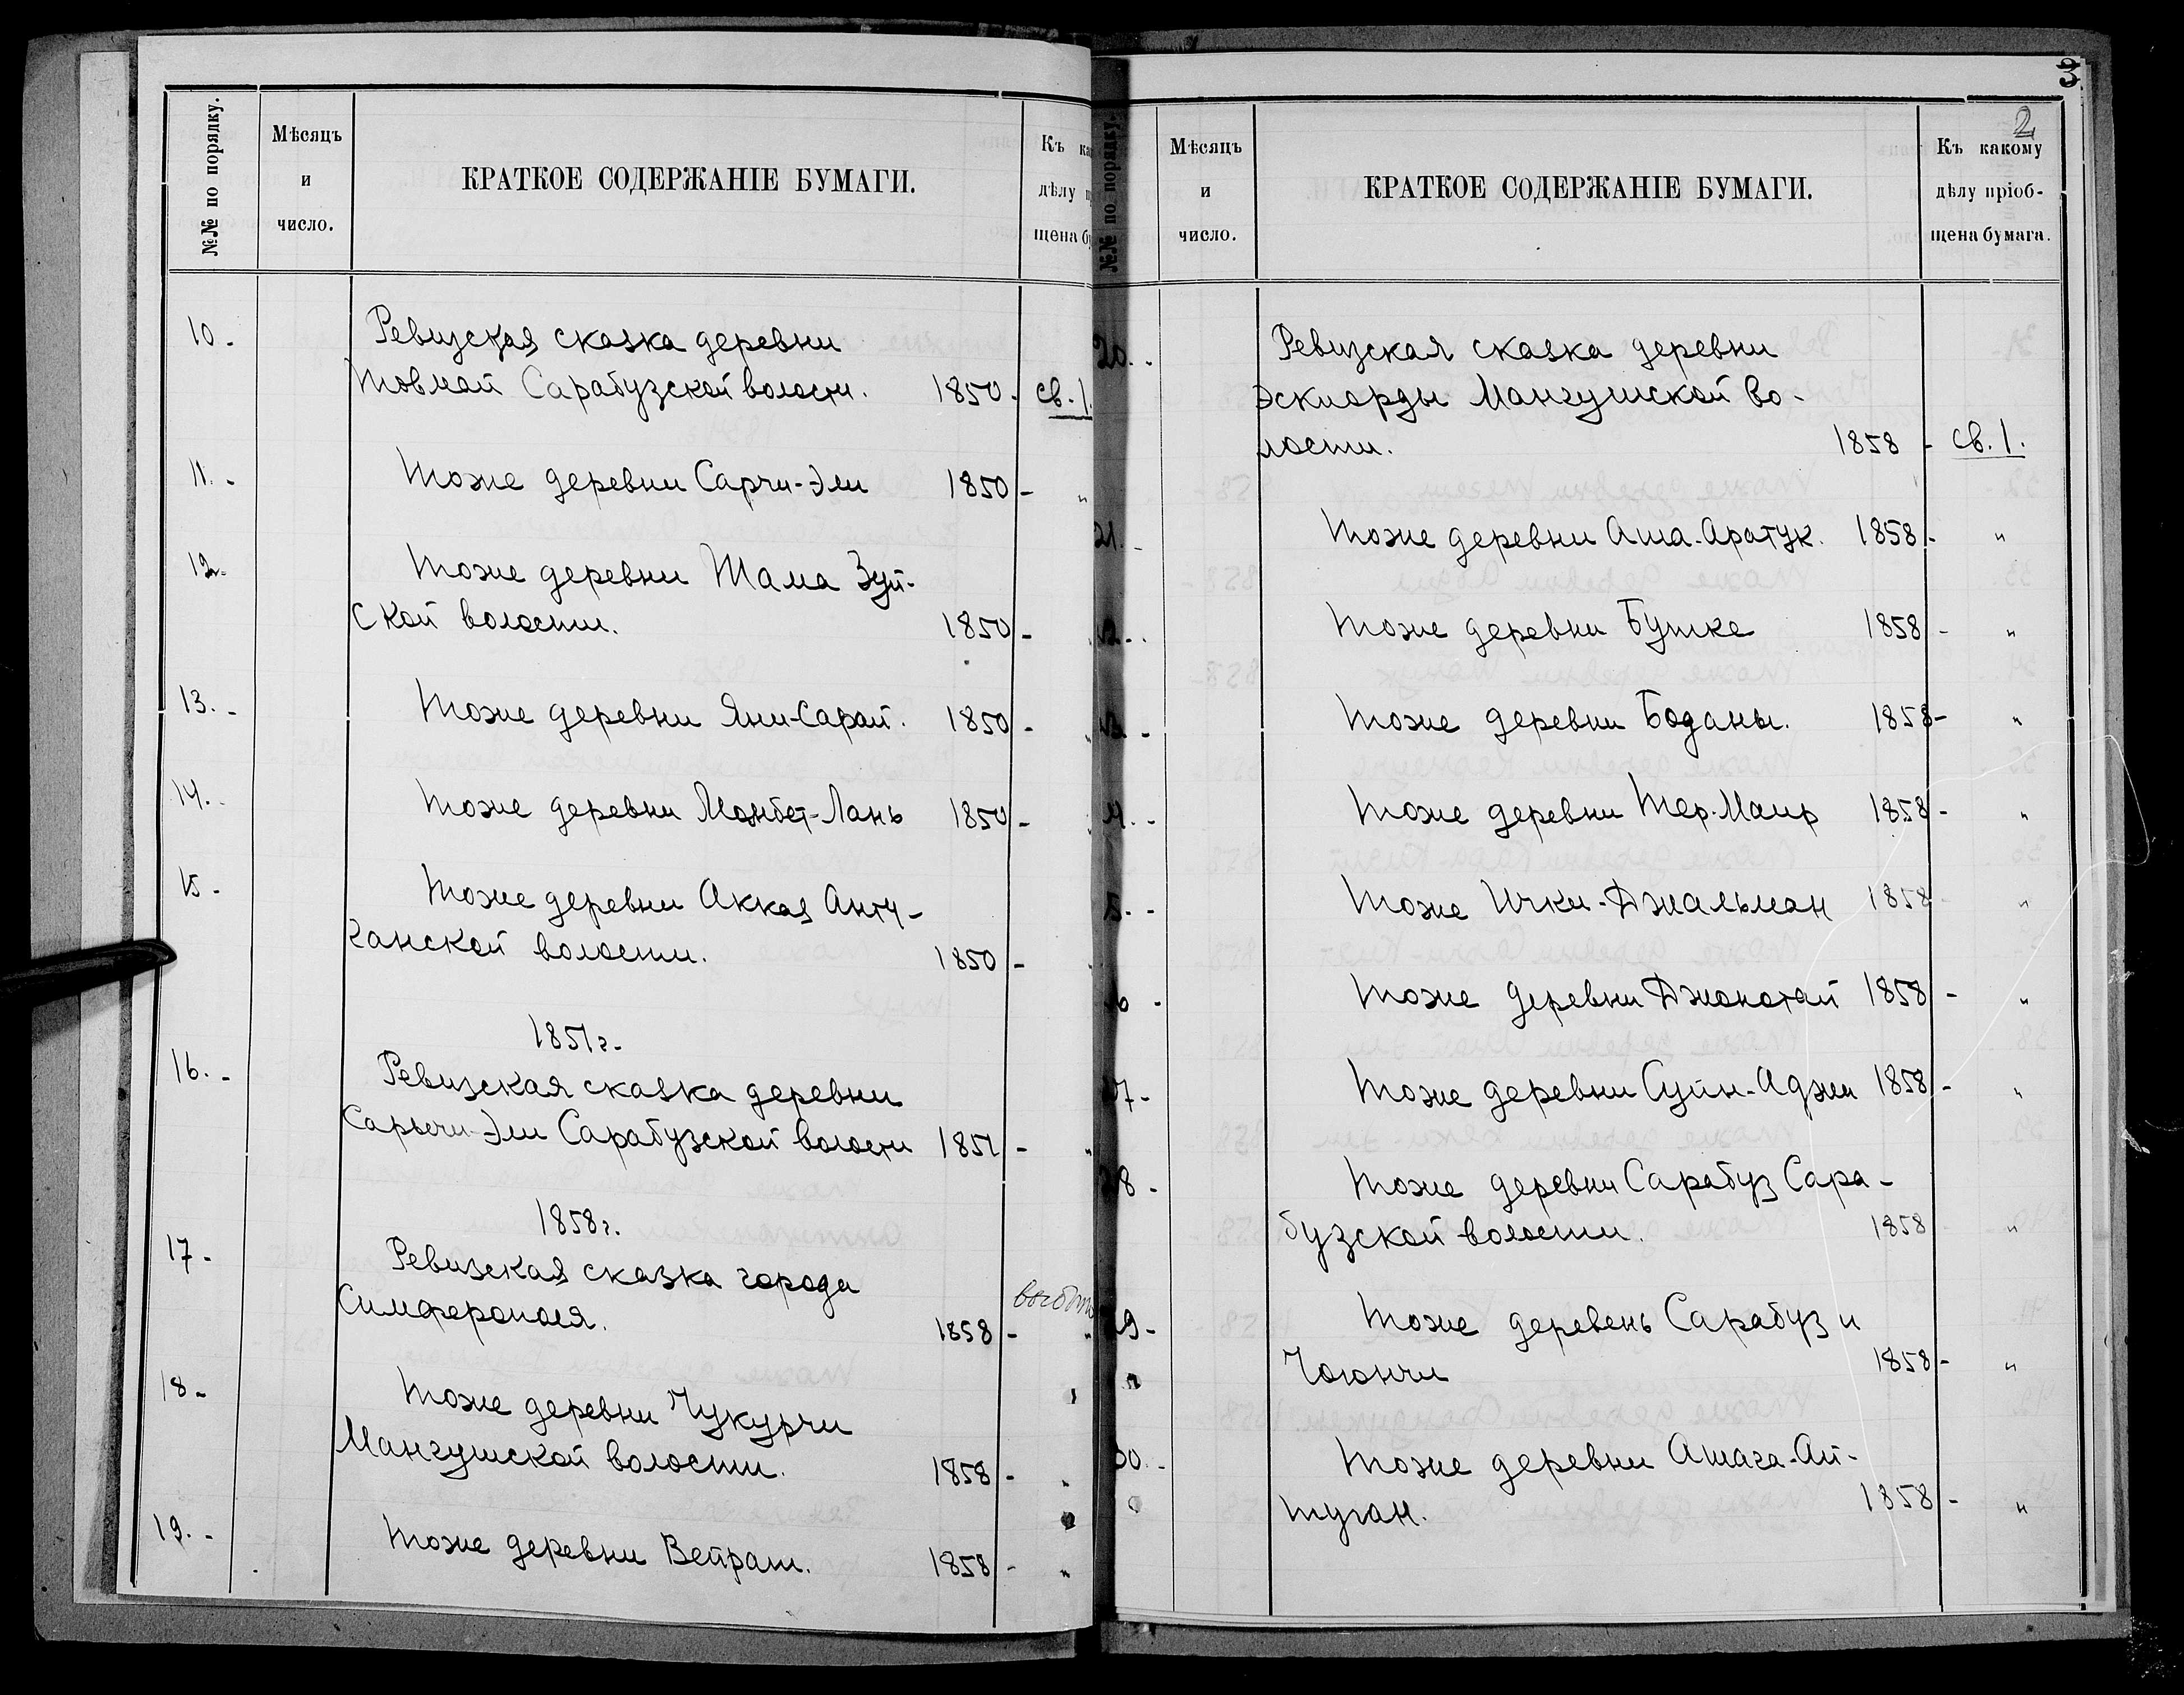 №№ по порядку.
Мѣсяцъ
и
число.
КРАТКОЕ СОДЕРЖАНІЕ БУМАГИ.
Къ
дѣлу
щена
10.
Ревизская сказка деревни
Товмай Сарабузской волости. 1850. св. 1.
11. Тоже деревни Сарчи-Эли 1850 - "
12. Тоже деревни Тама Зуй-
ской волости. 1850 -
13. Тоже деревни Яни-Сарай. 1850 - "
14. Тоже деревни Манбет-Лань 1850 -
15 - Тоже деревни Аккая Анту-
ганской волости. 1850 -
1851 г.
16. - Ревизская сказка деревни
Сарычи-Эли Сарабузской волости 1851 - "
1858 г.
17 - Ревизская сказка города
Симферополя. 1858 - "
18 - Тоже деревни Чукурчи
Мангушской волости. 1858 - "
19. - Тоже деревни Вейрат. 1858 - "
3
2
№№ по порядку.
Мѣсяцъ
и
число.
КРАТКОЕ СОДЕРЖАНІЕ БУМАГИ.
Къ какому
дѣлу пріоб-
щена бумага.
20. - Ревизская сказка деревни
Эскиорды Мангушской во-
лости. 1858 - св. 1.
21. - Тоже деревни Аша-Аратук. 1858 - "
2. - Тоже деревни Бутке 1858 - "
3. - Тоже деревни Боданы. 1858 - "
4. - Тоже деревни Тер-Маир 1858 - "
5. - Тоже Ички-Джальман 1858 - "
6 - Тоже деревни Джанатай 1858 - "
27 - Тоже деревни Суин-Аджи 1858 - "
28 - Тоже деревни Сарабуз Сара-
бузской волости. 1858 - "
29 - Тоже деревень Сарабуз и
Чоюнчи 1858 - "
30. - Тоже деревни Ашага-Ай-
туган. 1858 - "